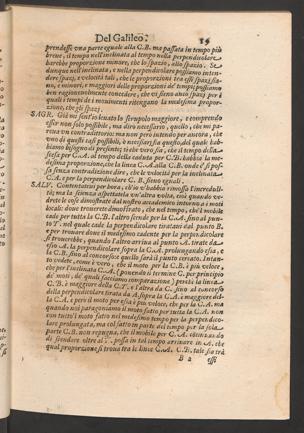 Del Galileo. 15
prendesse vna parte eguale alla C.B. ma passata in tempo più
breue, il tempo nell'inclinata al tempo nella perpendicolare
harebbe proporzione minore, che lo spazio, allo spazio. Se
dunque nell'inclinata, e nella perpendicolare possiamo inten-
dere spazi, e velocità tali, che le proporzioni tra essi spazi sia-
no, e minori, e maggiori delle proporzioni de' tempi; possiamo
ben ragioneuolmente concedere, che vi sieno anco spazi per i
quali i tempi de i mouimenti ritengano la medesima propor-
zione, che gli spazi.
SAGR. Già mi sent'io leuato lo scrupolo maggiore, e comprendo
esser non solo possibile, ma dirò necessario, quello, che mi pa-
reua vn contradittorio: ma non però intendo per ancora, che
vno di questi casi possibili, e necessari sia questo, del quale hab-
biamo bisogno di presente; sì che vero sia, che il tempo della
scesa per C.A. al tempo della caduta per C.B. habbia la me-
desima proporzione, che la linea C.A. alla C.B. onde e' si pos-
sa senza contradizione dire, che le velocità per la inclinata
C.A. e per la perpendicolare C.B. sieno eguali.
SALV. Contentateui per hora, ch'io v'habbia rimossa l'increduli-
tà; ma la scienza aspettatela vn'altra volta, cioè quando ve-
drete le cose dimostrate dal nostro accademico intorno a i moti
locali: doue trouerete dimostrato, che nel tempo, che 'l mobile
cade per tutta la C.B. l'altro scende per la C.A. sino al punto
T. nel quale cade la perpendicolare tiratatui dal punto B.
e per trouare doue il medesimo cadente per la perpendicolare
si trouerebbe, quando l'altro arriua al punto A. tirate da
esso A. la perpendicolare sopra la C.A. prolungando essa, e
la C.B. sino al concorso; e quello sarà il punto cercato. Intan-
to vedete, come è vero, che il moto per la C.B. è più veloce,
che per l'inclinata C.A. (ponendo il termine C. per principio
de' moti, de' quali facciamo comparazione) perchè la linea
C.B. è maggiore della C.T. e l'altra da C. sino al concorso
della perpendicolare tirata da A. sopra la C.A. è maggiore del-
la C.A. e però il moto per essa è più veloce, che per la C.A. ma
quando noi paragoniamo il moto fatto per tutta la C.A. non
con tutto 'l moto fatto nel medesimo tempo per la perpendico-
lare prolungata, ma col fatto in parte del tempo per la sola
parte C.B. non repugna, che il mobile per C.A. continuando
di scendere oltre al T. possa in tal tempo arriuare in A. che
qual proporzione si troua tra le linee C.A. C.B. tale sia tra
B 2 essi